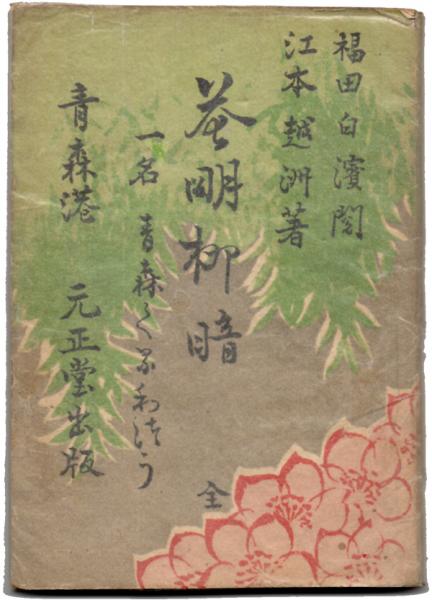 福田白濱閲
江本越洲著
花明柳暗
一名 青森くるわ
全
青森港 元正堂出版